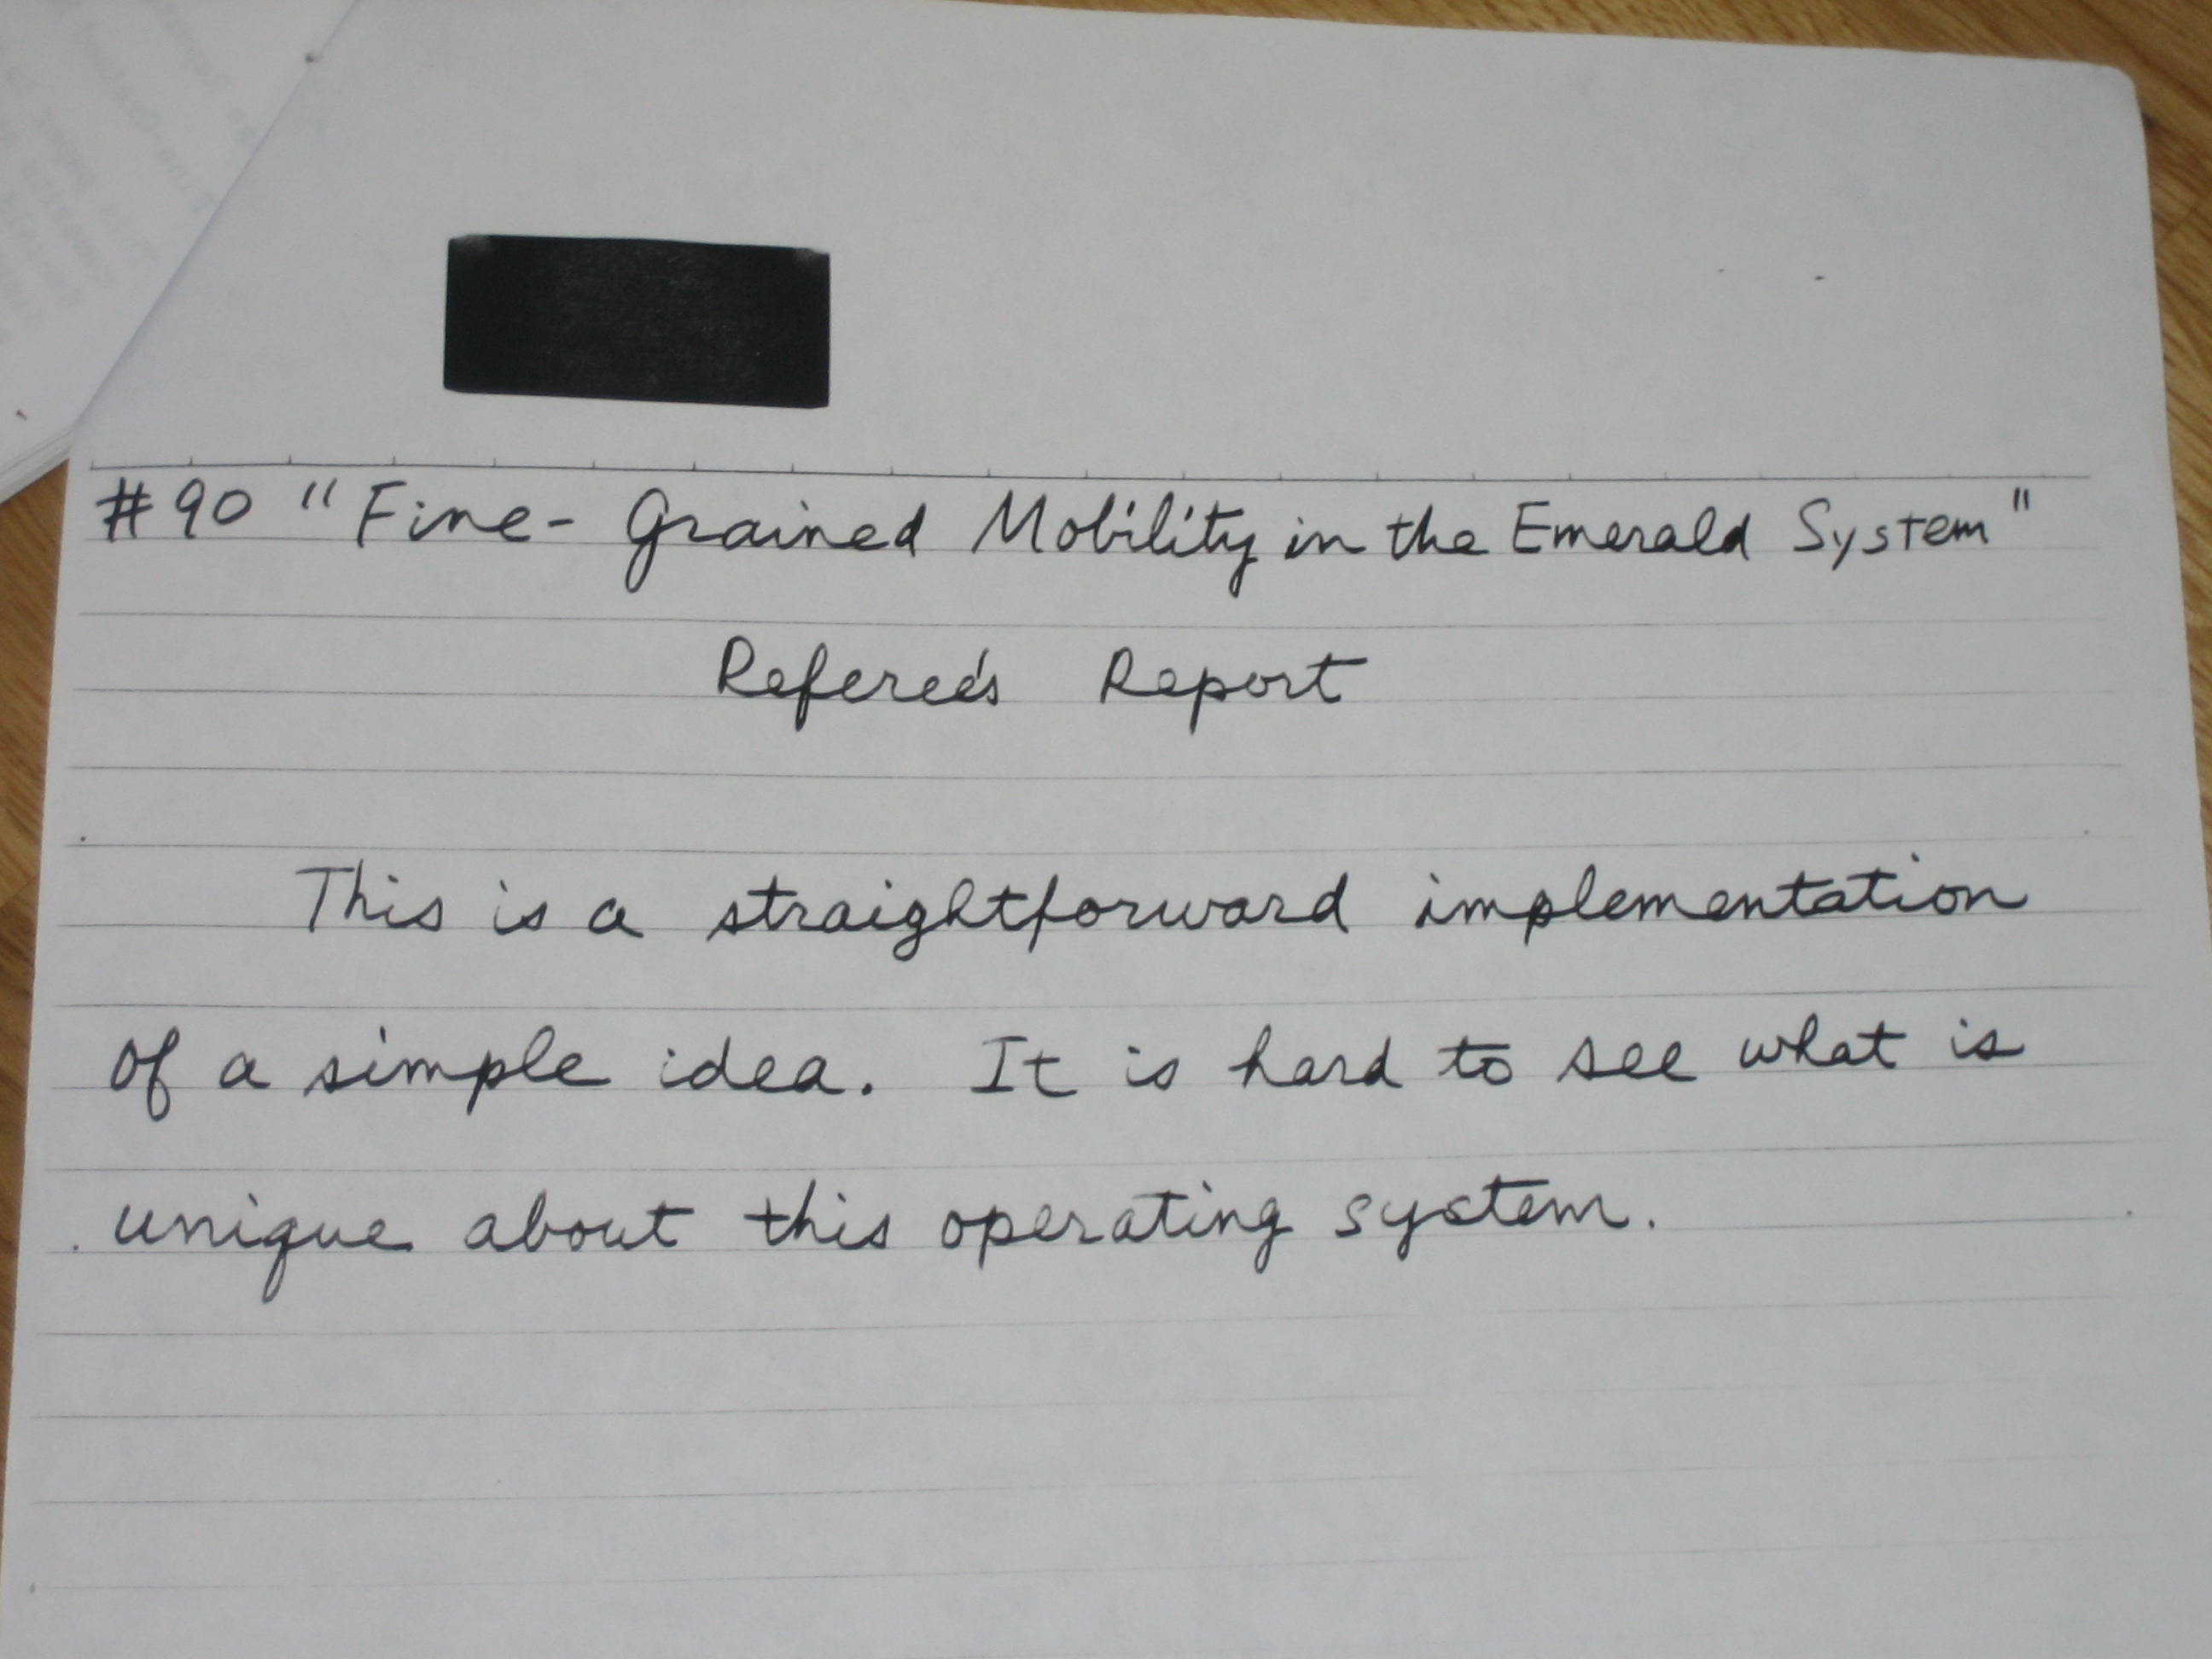 #90 "Fine-Grained Mobility in the Emerald System"
Referee's Report
This is a straightforward implementation
of a simple idea. It is hard to see what is
unique about this operating system.